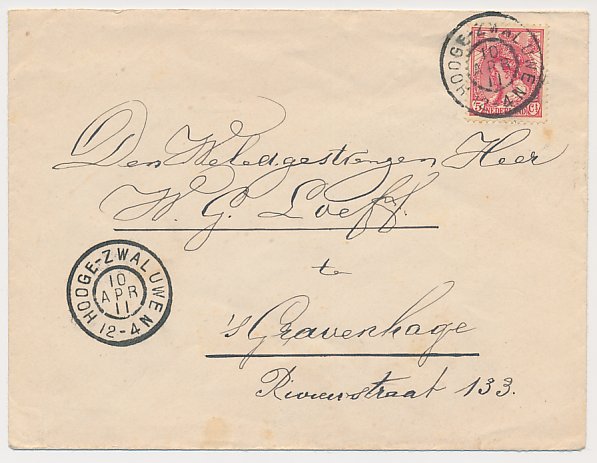 HOOGE-ZWALUWE
10
APR
11
4 N
5 Ct
NEDERLAND
Den Weledgestrengen Heer
W. G. Loeff.
te
's Gravenhage
Rivierstraat 133.
HOOGE-ZWALUWE
10
APR
11
12-4 N